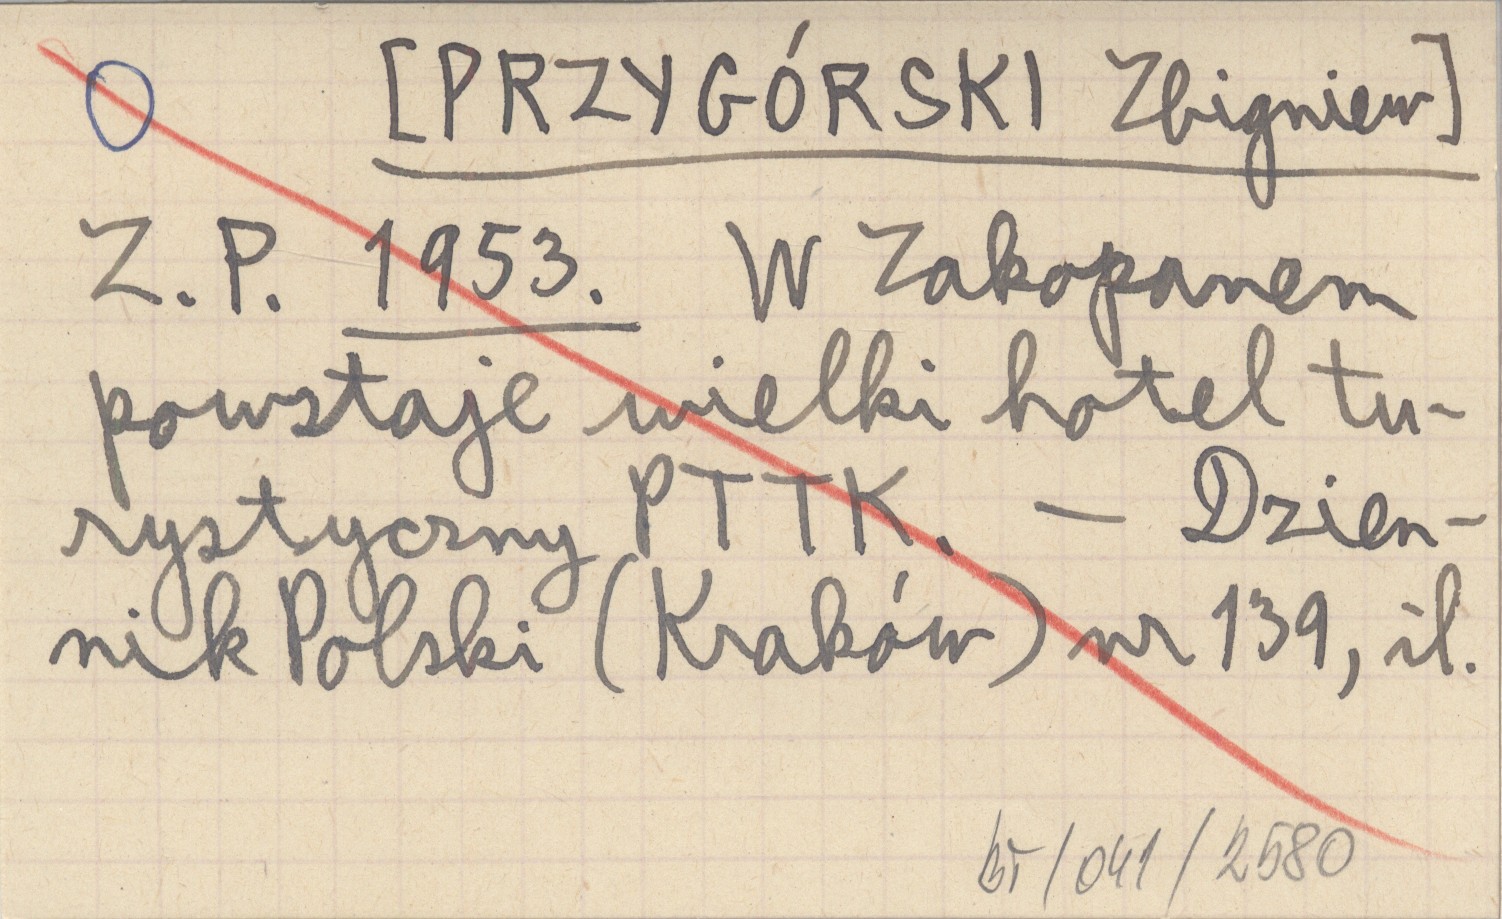 [PRZYGÓRSKI Zbigniew]
Z. P. 1953. W Zakopanem
powstaje wielki hotel tu-
rystyczny PTTK. — Dzien-
nik Polski (Kraków) nr 139, il.
/041/2580